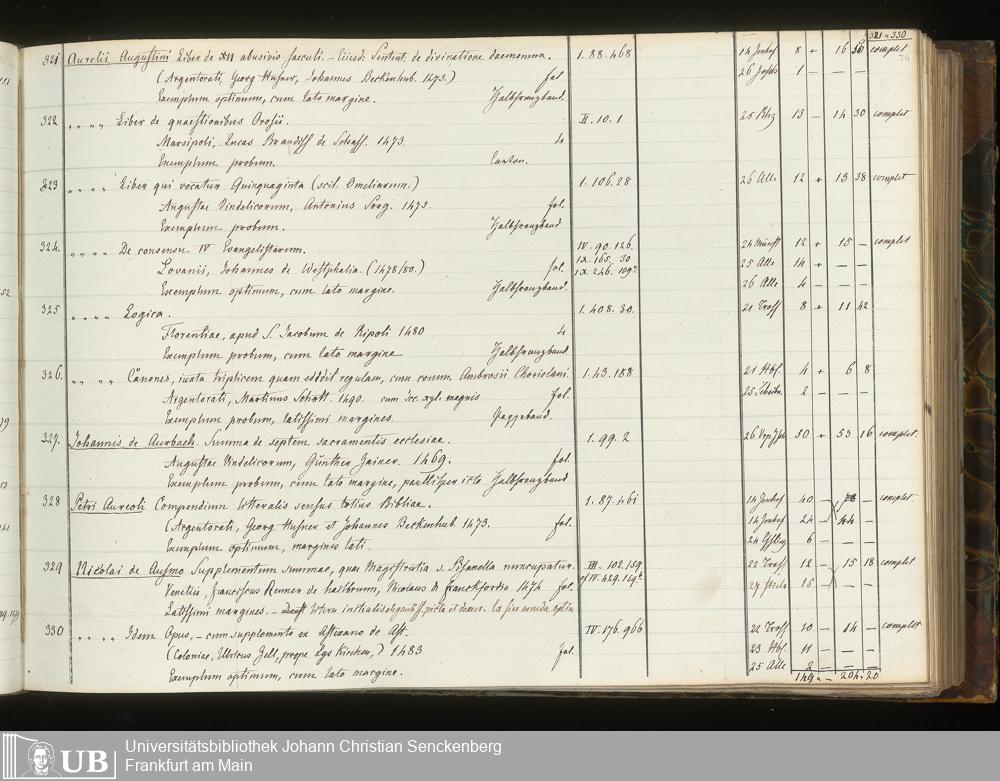 321-330
321 Aurelii Augustini Liber de XII abusivis saeculi. - Eiusd. Sentent. de divinatione daemonum. 1. 88. 468 8 + 16 complet
(Argentorati, Georg Husner, Johannes Beckenhub. 1473.) fol. 26 1 - - -
Exemplum optimum, cum lato margine. Halbfranzband.
322 " " " " Liber de quaestionibus Orosii. II. 10. 1 25 13 - 14 30 complet
Marsipoli, Lucas Brandiss de Schass. 1473. 4
Exemplum probum. Carton.
323 " " " " Liber qui vocatur Quinquaginta (scil. Omeliarum.) 1. 106. 28 26 Alle 12 + 13 38 complet
Augustae Vindelicorum, Antonius Sorg. 1475. fol.
Exemplum probum. Halbfranzband
324. " " " " De consensu IV Evangelistarum. IV. 90. 126. 24 12 + 15 - complet
Lovanii, Johannes de Westphalia. (1478/80.) fol. IX. 165. 30 25 Alle 14 + - -
Exemplum optimum, cum lato margine. Halbfranzband. IX. 246. 109 26 Alle 4 - - -
325 " " " " Logica. 1. 408. 30. 21 Tross 8 + 11 42
Florentiae, apud S. Jacobum de Ripoli 1480 4
Exemplum probum, cum lato margine Halbfranzband
326. " " " Canones, iuxta triplicem quam edidit regulam, cum comm. Ambrosii Choriolani. 1. 43. 188 21 Hbf. 4 + 6 8
Argentorati, Martinus Schott. 1490. cum icc. xyl. magnis fol. 25 2 - - -
Exemplum probum, latissimi margines. Pappeband.
327. Johannis de Aurbach. Summa de septem sacramentis ecclesiae. 1. 99. 2 26 30 + 53 16 complet.
Augustae Vindelicorum, Günther Zainer. 1469. fol.
Exemplum probum, cum lato margine, Halbfranzband
328 Petri Aureoli Compendium litteralis sensus totius Bibliae. 1. 87. 461 40 - - complet.
(Argentorati, Georg Husner et Johannes Beckenhub. 1473. fol. 24 - 44 -
Exemplum optimum, margines lati. 24 6 - - -
329 Nicolai de Ausmo Supplementum summae, quae Magistrutia s. Pisanella nuncupatur. III. 102. 159. 22 Tross 12 - 15 18 complet
Venetiis, Franciscus Renner de hailbrunn, Nicolaus de franckfordia 1474 fol. IV. 429. 159 27 15 - - -
Latissimi margines. - Litera initialis
330 " " " " Idem Opus, - cum supplemento ex Astexano de Ast. IV. 176. 966 22 Tross 10 - 14 - complet
(Coloniae, Ulricus Zell, prope Lys Kirchen,) 1483 fol. 23 Hbf. 11 - - -
Exemplum optimum, cum lato margine. 25 Alle 2 - - -
149 - - 204 - 20
UB
Universitätsbibliothek Johann Christian Senckenberg
Frankfurt am Main